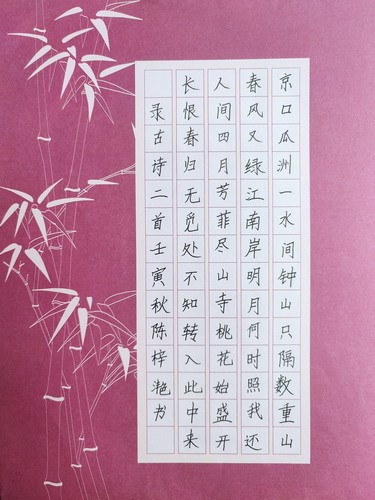 京口瓜洲一水间钟山只隔数重山
春风又绿江南岸明月何时照我还
人间四月芳菲尽山寺桃花始盛开
长恨春归无觅处不知转入此中来
录古诗二首壬寅秋陈梓滟书